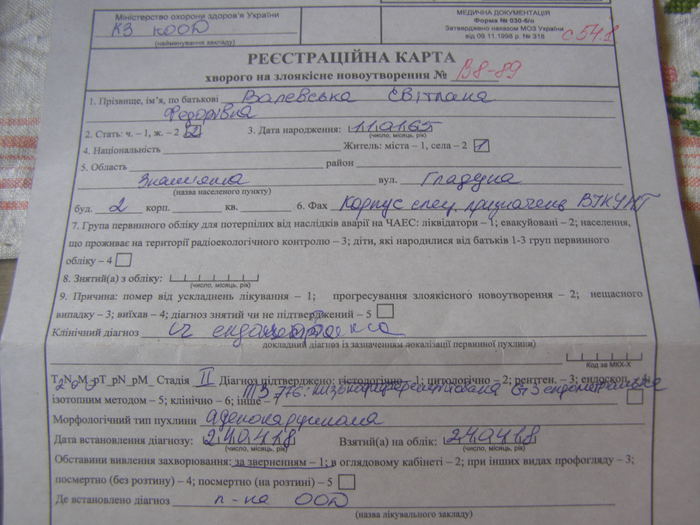 Міністерство охорони здоров'я України
КЗ КООД
(найменування закладу)
МЕДИЧНА ДОКУМЕНТАЦІЯ
Форма № 030-6/о
Затверджено наказом МОЗ України
від 09.11.1998 р. № 318
РЕЄСТРАЦІЙНА КАРТА
хворого на злоякісне новоутворення № В8-89
1. Прізвище, ім'я, по батькові Валевська Світлана
Федорівна
2. Стать: ч. – 1, ж. – 2 2 3. Дата народження:
(число, місяць, рік)
4. Національність Житель: міста – 1, села – 2 1
5. Область район
Знам'янка вул. Гладуна
(назва населеного пункту)
буд. 2 корп. кв. 6. Фах Корпус спец. призначення
7. Група первинного обліку для потерпілих від наслідків аварії на ЧАЕС: ліквідатори – 1; евакуйовані – 2; населення,
що проживає на території радіоекологічного контролю – 3; діти, які народилися від батьків 1-3 груп первинного
обліку – 4
8. Знятий(а) з обліку:
(число, місяць, рік)
9. Причина: помер від ускладнень лікування – 1; прогресування злоякісного новоутворення – 2; нещасного
випадку – 3; виїхав – 4; діагноз знятий чи не підтверджений – 5
Клінічний діагноз ендометрія
докладний діагноз із зазначенням локалізації первинної пухлини)
Код за МКХ-Х
Стадія II Діагноз підтверджено: гістологічно – 1; цитологічно – 2; рентген. – 3; ендоскоп. – 4;
ізотопним методом – 5; клінічно – 6; інше –
Морфологічний тип пухлини аденокарцинома
Дата встановлення діагнозу: 240418 Взятий(а) на облік: 240418
(число, місяць, рік) (число, місяць, рік)
Обставини вивлення захворювання: за зверненням – 1; в оглядовому кабінеті – 2; при інших видах профогляду – 3;
посмертно (без розтину) – 4; посмертно (на розтині) – 5
Де встановлено діагноз п-ка ООД
(назва лікувального закладу)